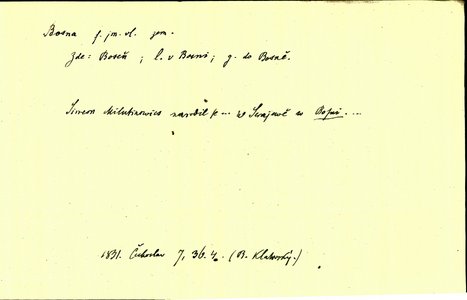 Bosna f. jm. vl. zem.
Zde: Boseň ; l. v Bosni ; g. do Bosně.
Simeon Milutinowics narodil se ... w Sarajewě w Bosni. ...
1831. Čechoslav 7, 36. 4. (B. Klatovský.)